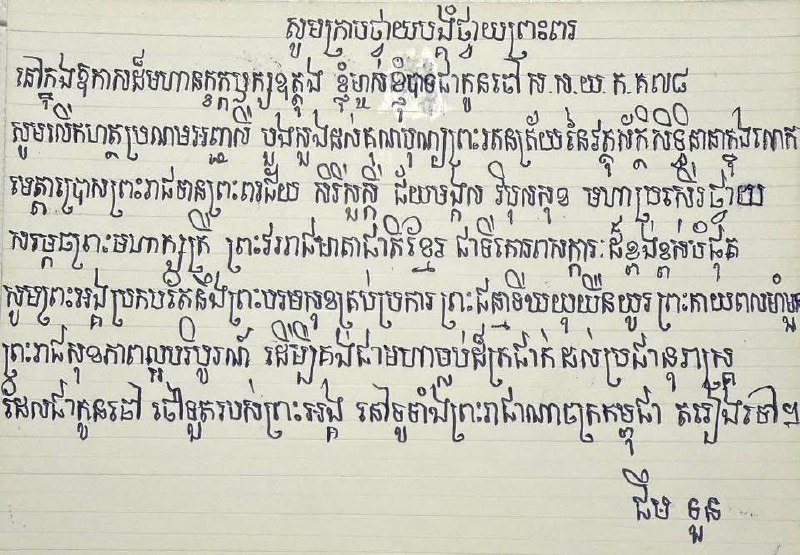 សូមក្រាបថ្វាយបង្គំថ្វាយព្រះពរ
នៅក្នុងឱកាសដ៏មហានក្ខត្តឫក្សឧត្តុង្គ ខ្ញុំម្ចាស់ខ្ញុំបាទជាកូនចៅ ស.ស.យ.ក.គ៧៨
សូមលើកហត្ថប្រណមអញ្ជលី បួងសួងដល់គុណបុណ្យព្រះរតនត្រ័យនៃវត្ថុស័ក្តិសិទ្ធិនានាក្នុងលោក
មេត្តាប្រោសព្រះរាជទានព្រះពរជ័យ សិរីសួស្តី ជ័យមង្គល វិបុលសុខ មហាប្រសើរថ្វាយ
សម្តេចព្រះមហាក្សត្រី ព្រះវររាជមាតាជាតិខ្មែរ ជាទីគោរពសក្ការៈដ៏ខ្ពង់ខ្ពស់បំផុត
សូមព្រះអង្គប្រកបតែនឹងព្រះបរមសុខគ្រប់ប្រការ ព្រះជន្មាទីឃាយុយឺនយូរ ព្រះកាយពលមាំមួន
ព្រះរាជសុខភាពល្អបរិបូរណ៍ ដើម្បីគង់ជាមហាម្លប់ដ៏ត្រជាក់ ដល់ប្រជានុរាស្ត្រ
ដែលជាកូនចៅ ចៅទួតរបស់ព្រះអង្គ នៅទូទាំងព្រះរាជាណាចក្រកម្ពុជា តរៀងទៅ។
ជឹម ទួន